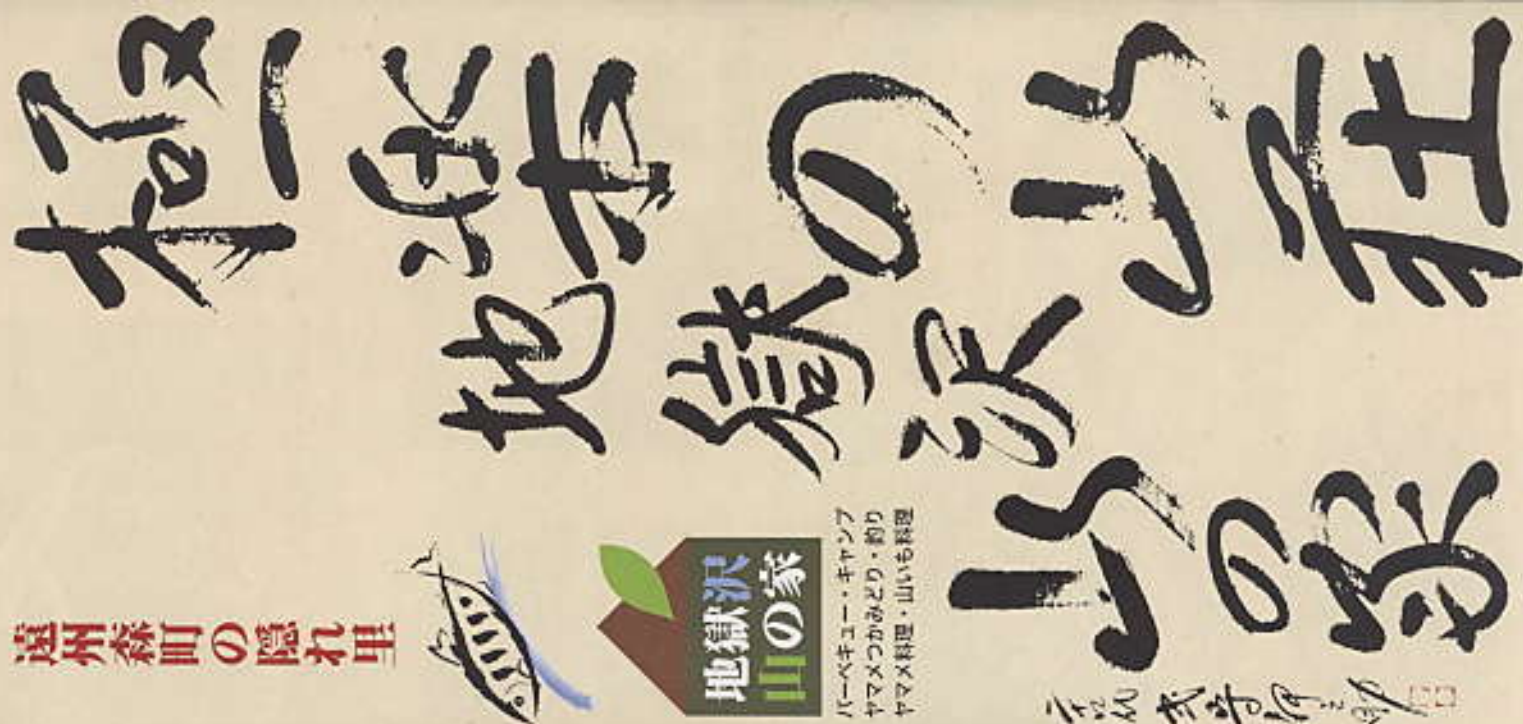 極楽の山荘
地獄沢
山の家
遠州森町の隠れ里
地獄沢
山の家
バーベキュー・キャンプ
ヤマメつかみどり・釣り
ヤマメ料理・山いも料理